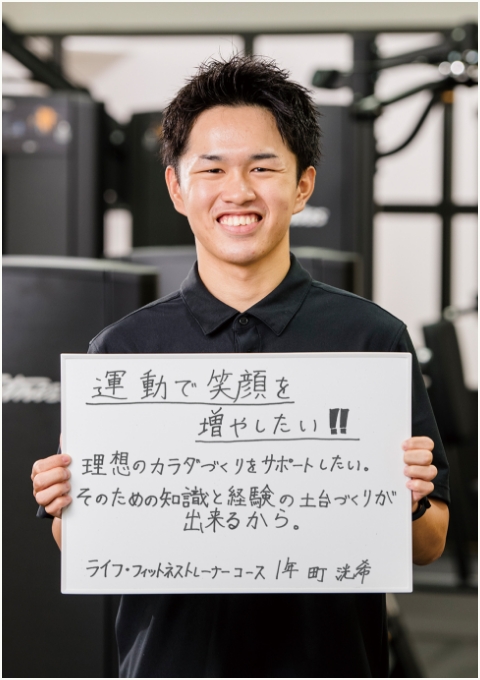 運動で笑顔を
増やしたい!!
理想のカラダづくりをサポートしたい。
そのための知識と経験の土台づくりが
出来るから。
ライフ・フィットネストレーナーコース 1年 町 洸希